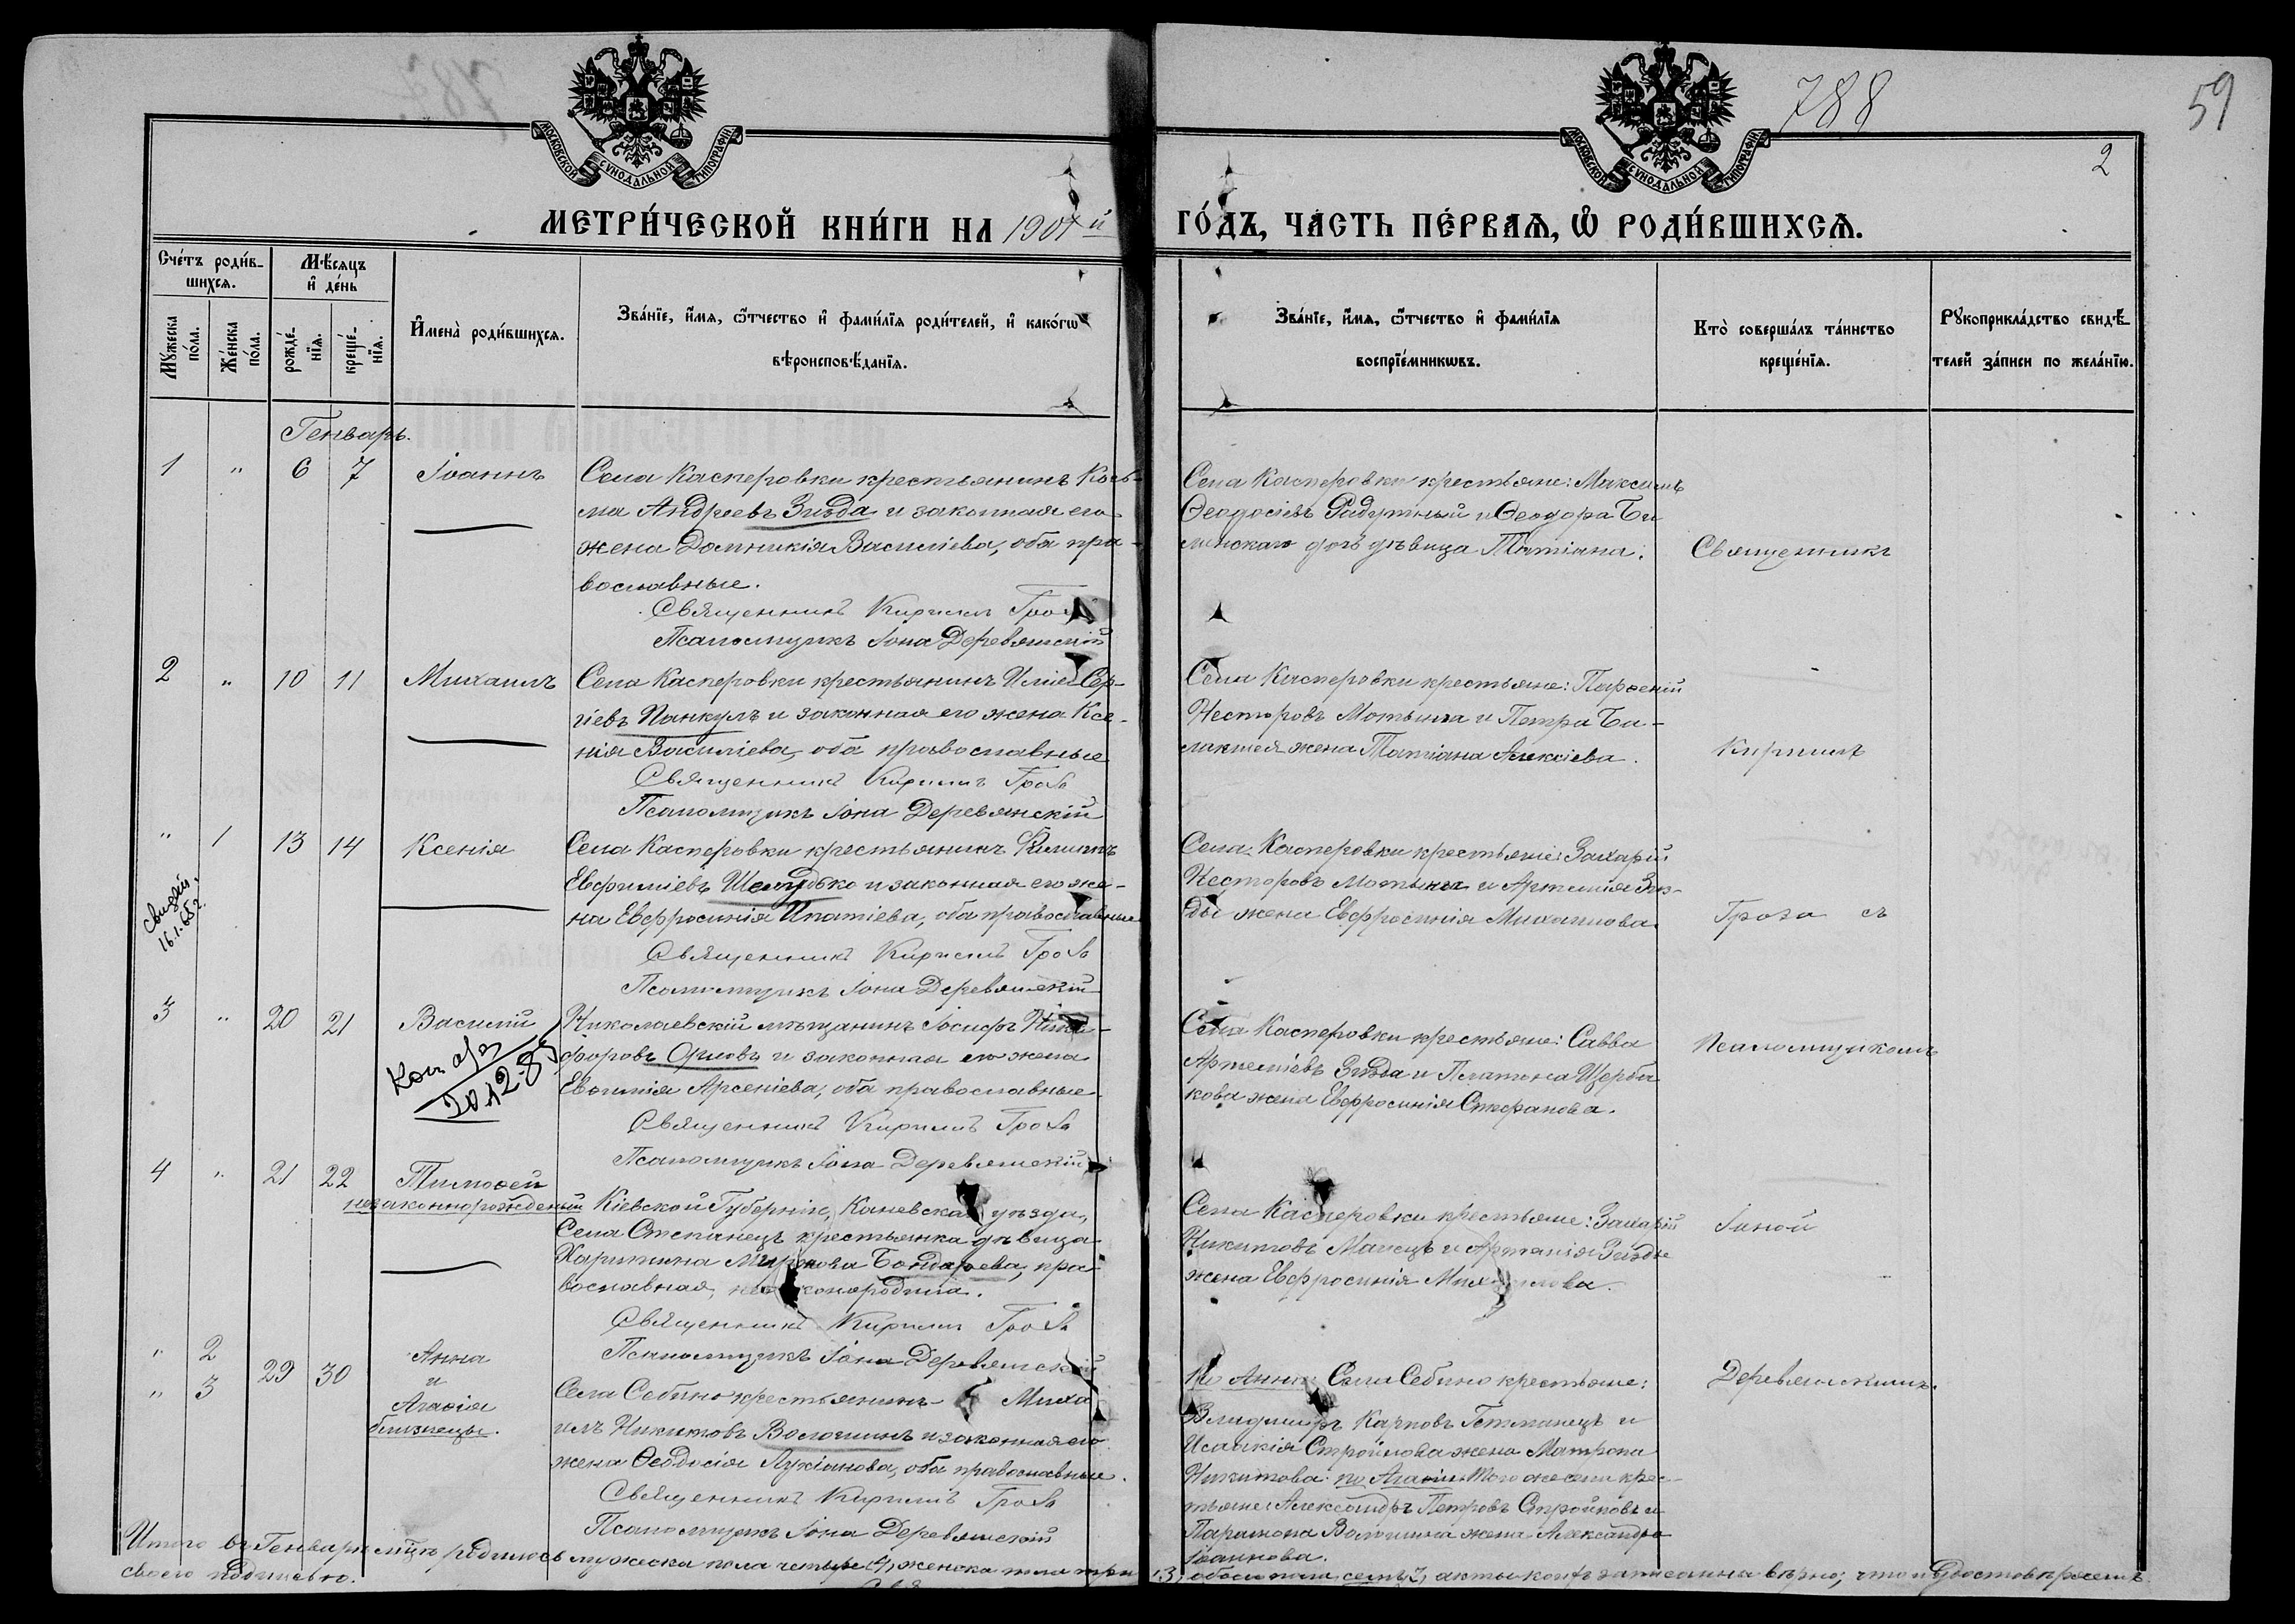 788
59
2
МОСКОВСКОЙ СѴНОДАЛЬНОЙ ТИПОГРАФІИ
МОСКОВСКОЙ СѴНОДАЛЬНОЙ ТИПОГРАФІИ
МЕТРИ́ЧЕСКОЙ КНИ́ГИ НА 1901й ГО́ДЪ, ЧА́СТЬ ПЕ́РВАѦ, Ѡ РОДИ́ВШИХСѦ.
Счéтъ роди́в-
шихсѧ.
Мѣ́сѧцъ
и҆ де́нь
Мꙋ́жеска
по́ла.
Же́нска
по́ла.
рожде́-
нїѧ.
креще́-
нїѧ.
И҆мена̀ роди́вшихсѧ.
Зва́нїе, и҆́мѧ, ѻ҆́тчество и҆ фами́лїѧ роди́телей, и҆ како́гѡ
вѣроисповѣ́данїѧ.
Зва́нїе, и҆́мѧ, ѻ҆́тчество и҆ фами́лїѧ
воспрїе́мникѡвъ.
Кто̀ соверша́лъ та́инство
креще́нїѧ.
Рꙋкоприкла́дство свидѣ́-
телей за́писи по жела́нїю.
Генварь.
1 " 6 7 Іоаннъ
Села Касперовки крестьянинъ Козь-
ма Андреевъ Зизда и законная его
жена Домникія Василіева, оба пра-
вославные.
Священникъ Кириллъ Гроза
Псаломщикъ Іона Деревянскій
Села Касперовки крестьяне: Максимъ
Ѳеодосіевъ Радутный и Ѳеодора Би
линскаго дочь дѣвица Татіана.
Священникъ
2 " 10 11 Михаилъ
Села Касперовки крестьянинъ Илія Сер-
гіевъ Панкулъ и законная его жена Ксе-
нія Василіева, оба православные
Священникъ Кириллъ Гроза
Псаломщикъ Іона Деревянскій
Села Касперовки крестьяне: Парѳеній
Несторовъ Мотыга и Петра Би-
жена Татіана Алексіева.
Кириллъ
" 1 13 14 Ксенія
16.1.652.
Села Касперовки крестьянинъ Филиппъ
Евфиміевъ Шелудько и законная его же-
на Евфросинія Ипатіева, оба православные
Священникъ Кириллъ Гроза
Псаломщикъ Іона Деревянскій
Села Касперовки крестьяне: Захарій
Несторовъ Мотыга и Артемія Зиз-
ды жена Евфросинія Михаилова.
Гроза съ
3 " 20 21 Василій
Николаевскій мѣщанинъ Іосифъ Ники-
форовъ Орловъ и законная его жена
Евгенія Арсеніева, оба православные
Священникъ Кириллъ Гроза
Псаломщикъ Іона Деревянскій
Села Касперовки крестьяне: Савва
Артеміевъ Зизда и Платона Щерба
кова жена Евфросинія Стефанова.
Псаломщикомъ
4 " 21 22 Тимоѳей
незаконнорожденный
Кіевской Губерніи, Каневскаго уѣзда,
Села Степанецъ крестьянка дѣвица
Харитина Бондарева, пра
вославная, незаконородила.
Священникъ Кириллъ Гроза
Псаломщикъ Іона Деревянскій
Села Касперовки крестьяне: Захарій
Никитовъ и Артемія Зизды
жена Евфросинія Михаилова.
Іоной
" 2
" 3
29 30
Анна
и
Агаѳія
близнецы.
Села Себино крестьянинъ Миха
илъ Никитовъ Волошинъ и законная его
жена Ѳеодосія Лукіанова, оба православные.
Священникъ Кириллъ Гроза
Псаломщикъ Іона Деревянскій
По Аннѣ: Села Себино крестьяне:
Владимиръ Карповъ Гетманецъ и
Исаакія Стройнова жена Матрона
Никитова: по Агаѳіи: Того же села крес-
тьяне: Александръ Петровъ Стройновъ и
Парамона Волошина жена Александра
Іоаннова.
Деревянскимъ.
Итого въ Генварѣ мцѣ родилось мужеска пола четыре 4, женска пола три 3, обоего пола семь 7, акты коихъ записаны вѣрно; что и удостовѣряемъ
своею подписью.